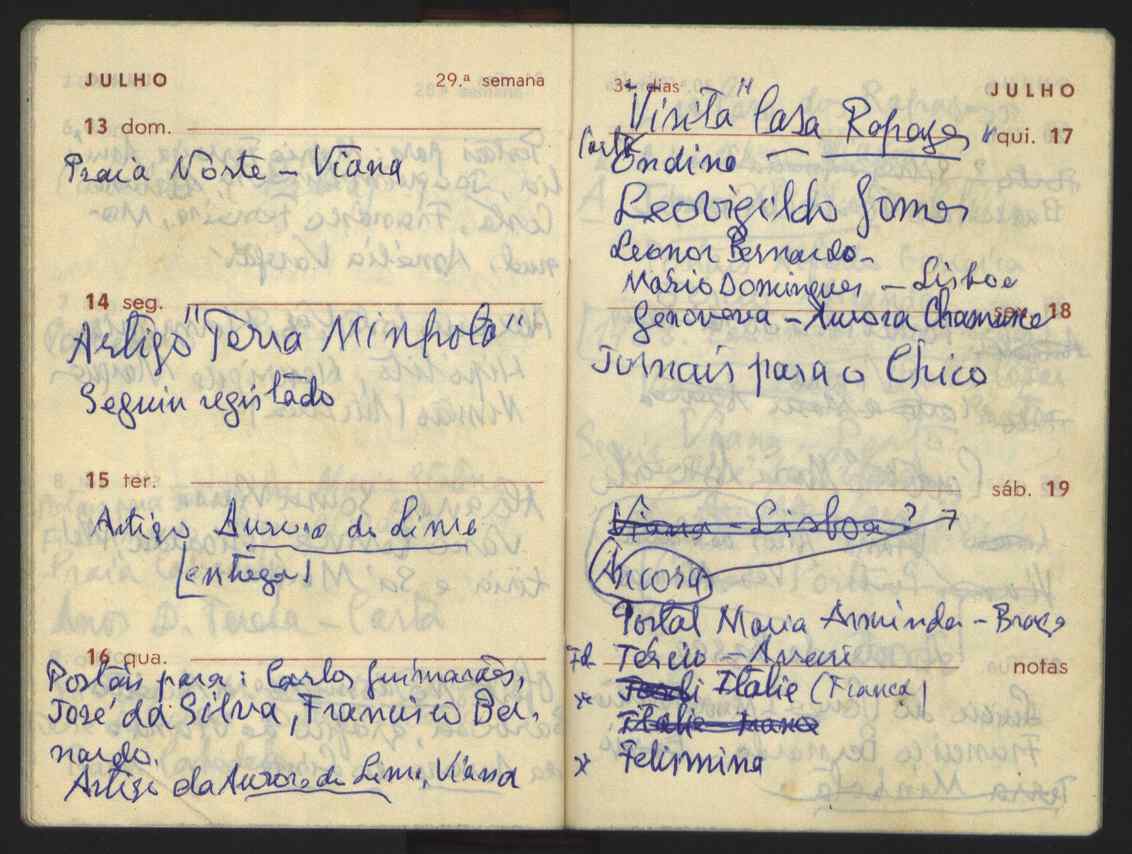 JULHO
29.ª semana
13 dom.
Praia Norte - Viana
14 seg.
Artigo "Terra Minhota"
Seguiu registado
15 ter.
Artigo Aurora do Lima
[entrega!
16 qua.
Postais para: Carlos Guimarães,
José da Silva, Francisco Ber-
nardo.
Artigo da Aurora do Lima, Viana
31 dias
JULHO
Visita "Casa Rapazes"
qui. 17
Carta
Ondina
Leovigildo Gomes
Leonor Bernardo -
Mário Domingues - Lisboa
Genoveva - Aurora
sex. 18
Jornais para o Chico
sáb. 19
Viana - Lisboa?
Âncora
Postal Maria Arminda - Braga
Tércio -
notas
Itália (França)
Itália
x Felismina